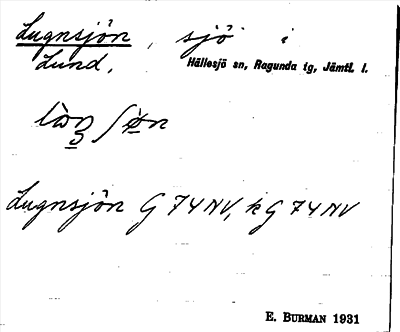 Lugnsjön, sjö i
Lund, Hällesjö sn, Ragunda tg, Jämtl. l.
Lugnsjön G 74 NV, kG 74 NV
E. BURMAN 1931